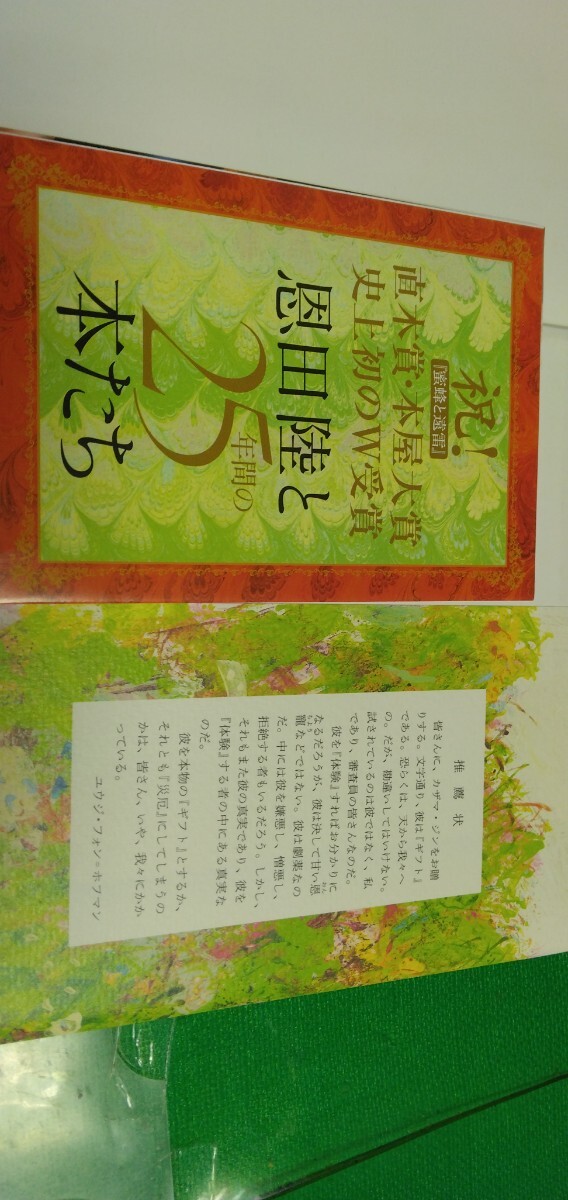 祝!
『蜜蜂と遠雷』
直木賞・本屋大賞
史上初のW受賞
恩田陸と
25年間の
本たち
推薦状
皆さんに、カザマ・ジンをお贈
りする。文字通り、彼は『ギフト』
である。恐らくは、天から我々へ
の。だが、勘違いしてはいけない。
試されているのは彼ではなく、私
であり、審査員の皆さんなのだ。
彼を『体験』すればお分かりに
なるだろうが、彼は決して甘い恩
寵などではない。彼は劇薬なの
だ。中には彼を嫌悪し、憎悪し、
拒絶する者もいるだろう。しかし、
それもまた彼の真実であり、彼を
『体験』する者の中にある真実な
のだ。
彼を本物の『ギフト』とするか、
それとも『災厄』にしてしまうの
かは、皆さん、いや、我々にかか
っている。
ユウジ・フォン=ホフマン